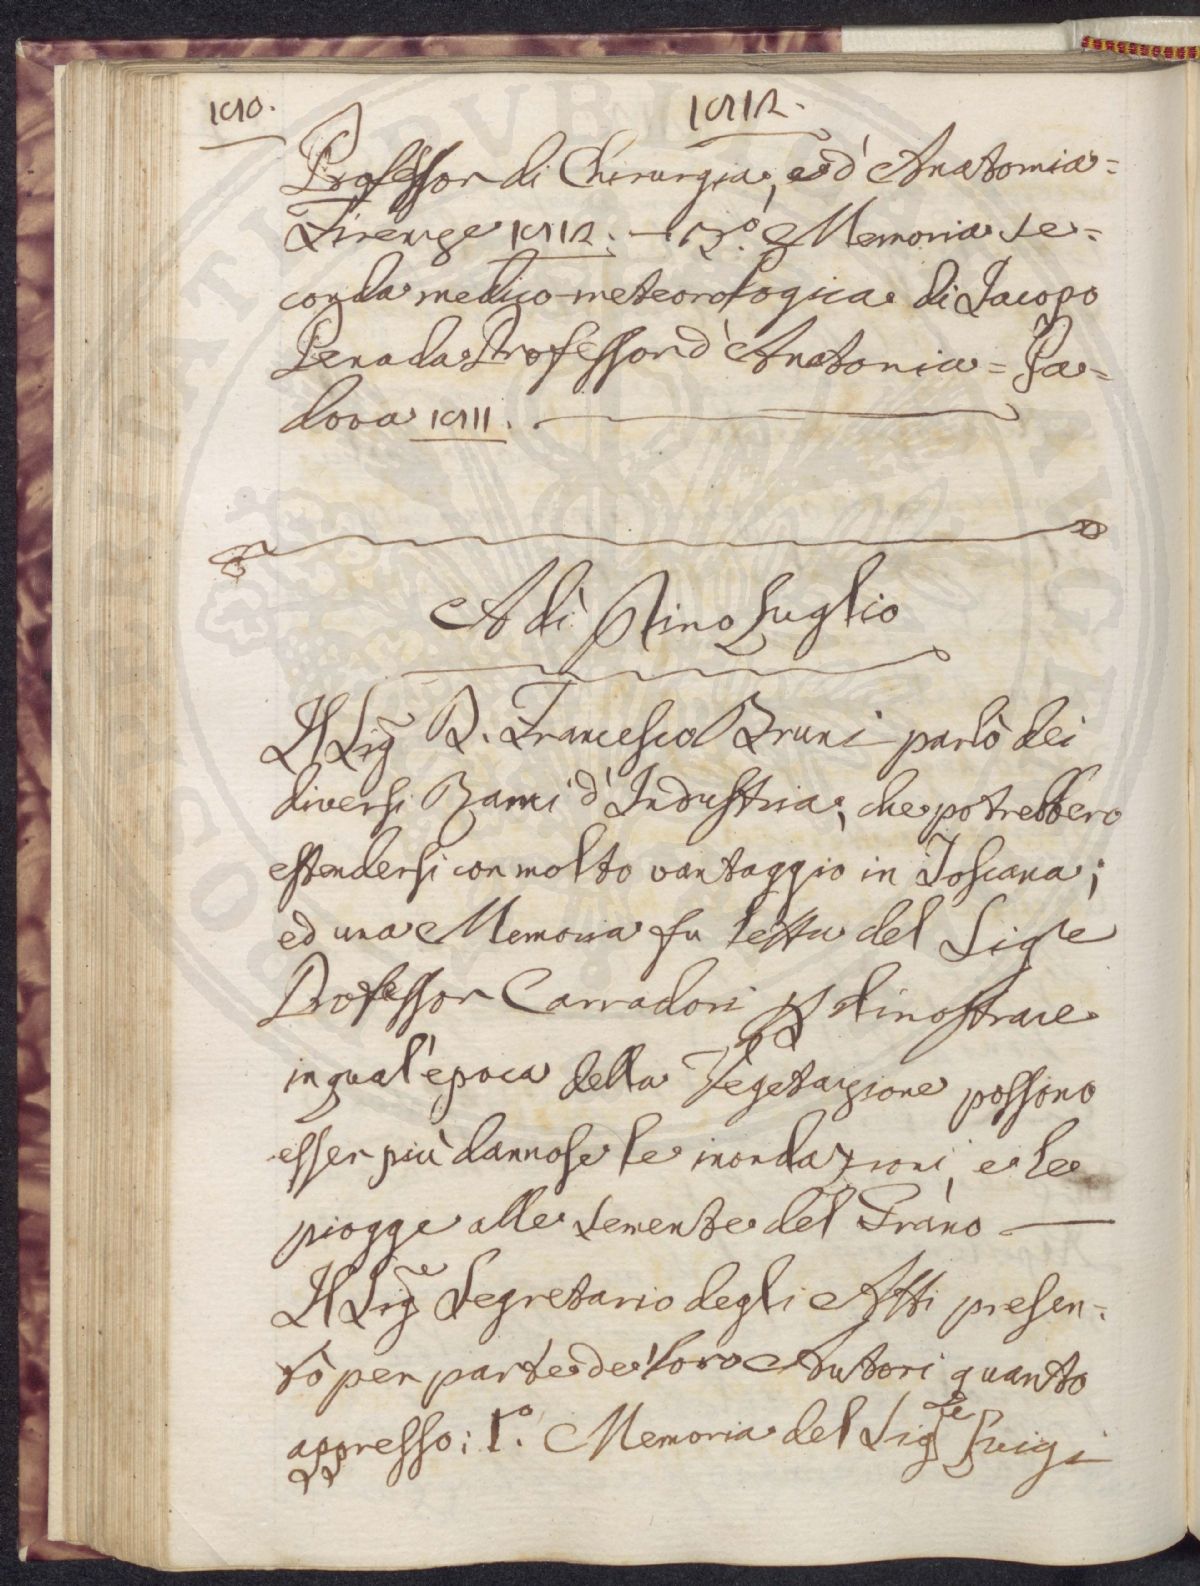 180.
1812.
Professor di Chirurgia, ed Anatomia =
Firenze 1812. — 13.º Memoria se=
conda medico-meteorologica di Jacopo
Penada Professor d'Anatomia = Pa=
dova 1811.
A dì Primo Luglio
Il Sigr D. Francesco Bruni parlò dei
diversi Rami d'Industria, che potrebbero
estendersi con molto vantaggio in Toscana;
ed una Memoria fu letta del Sigre
Professor Carradori p dimostrare
in qual'epoca della Vegetazione possino
esser più dannose le inondazioni, e le
piogge alle semente del Grano —
Il Sigre Segretario degli Atti presen=
tò per parte de' loro Autori quanto
appresso: 1.º Memoria del Sigre Luigi